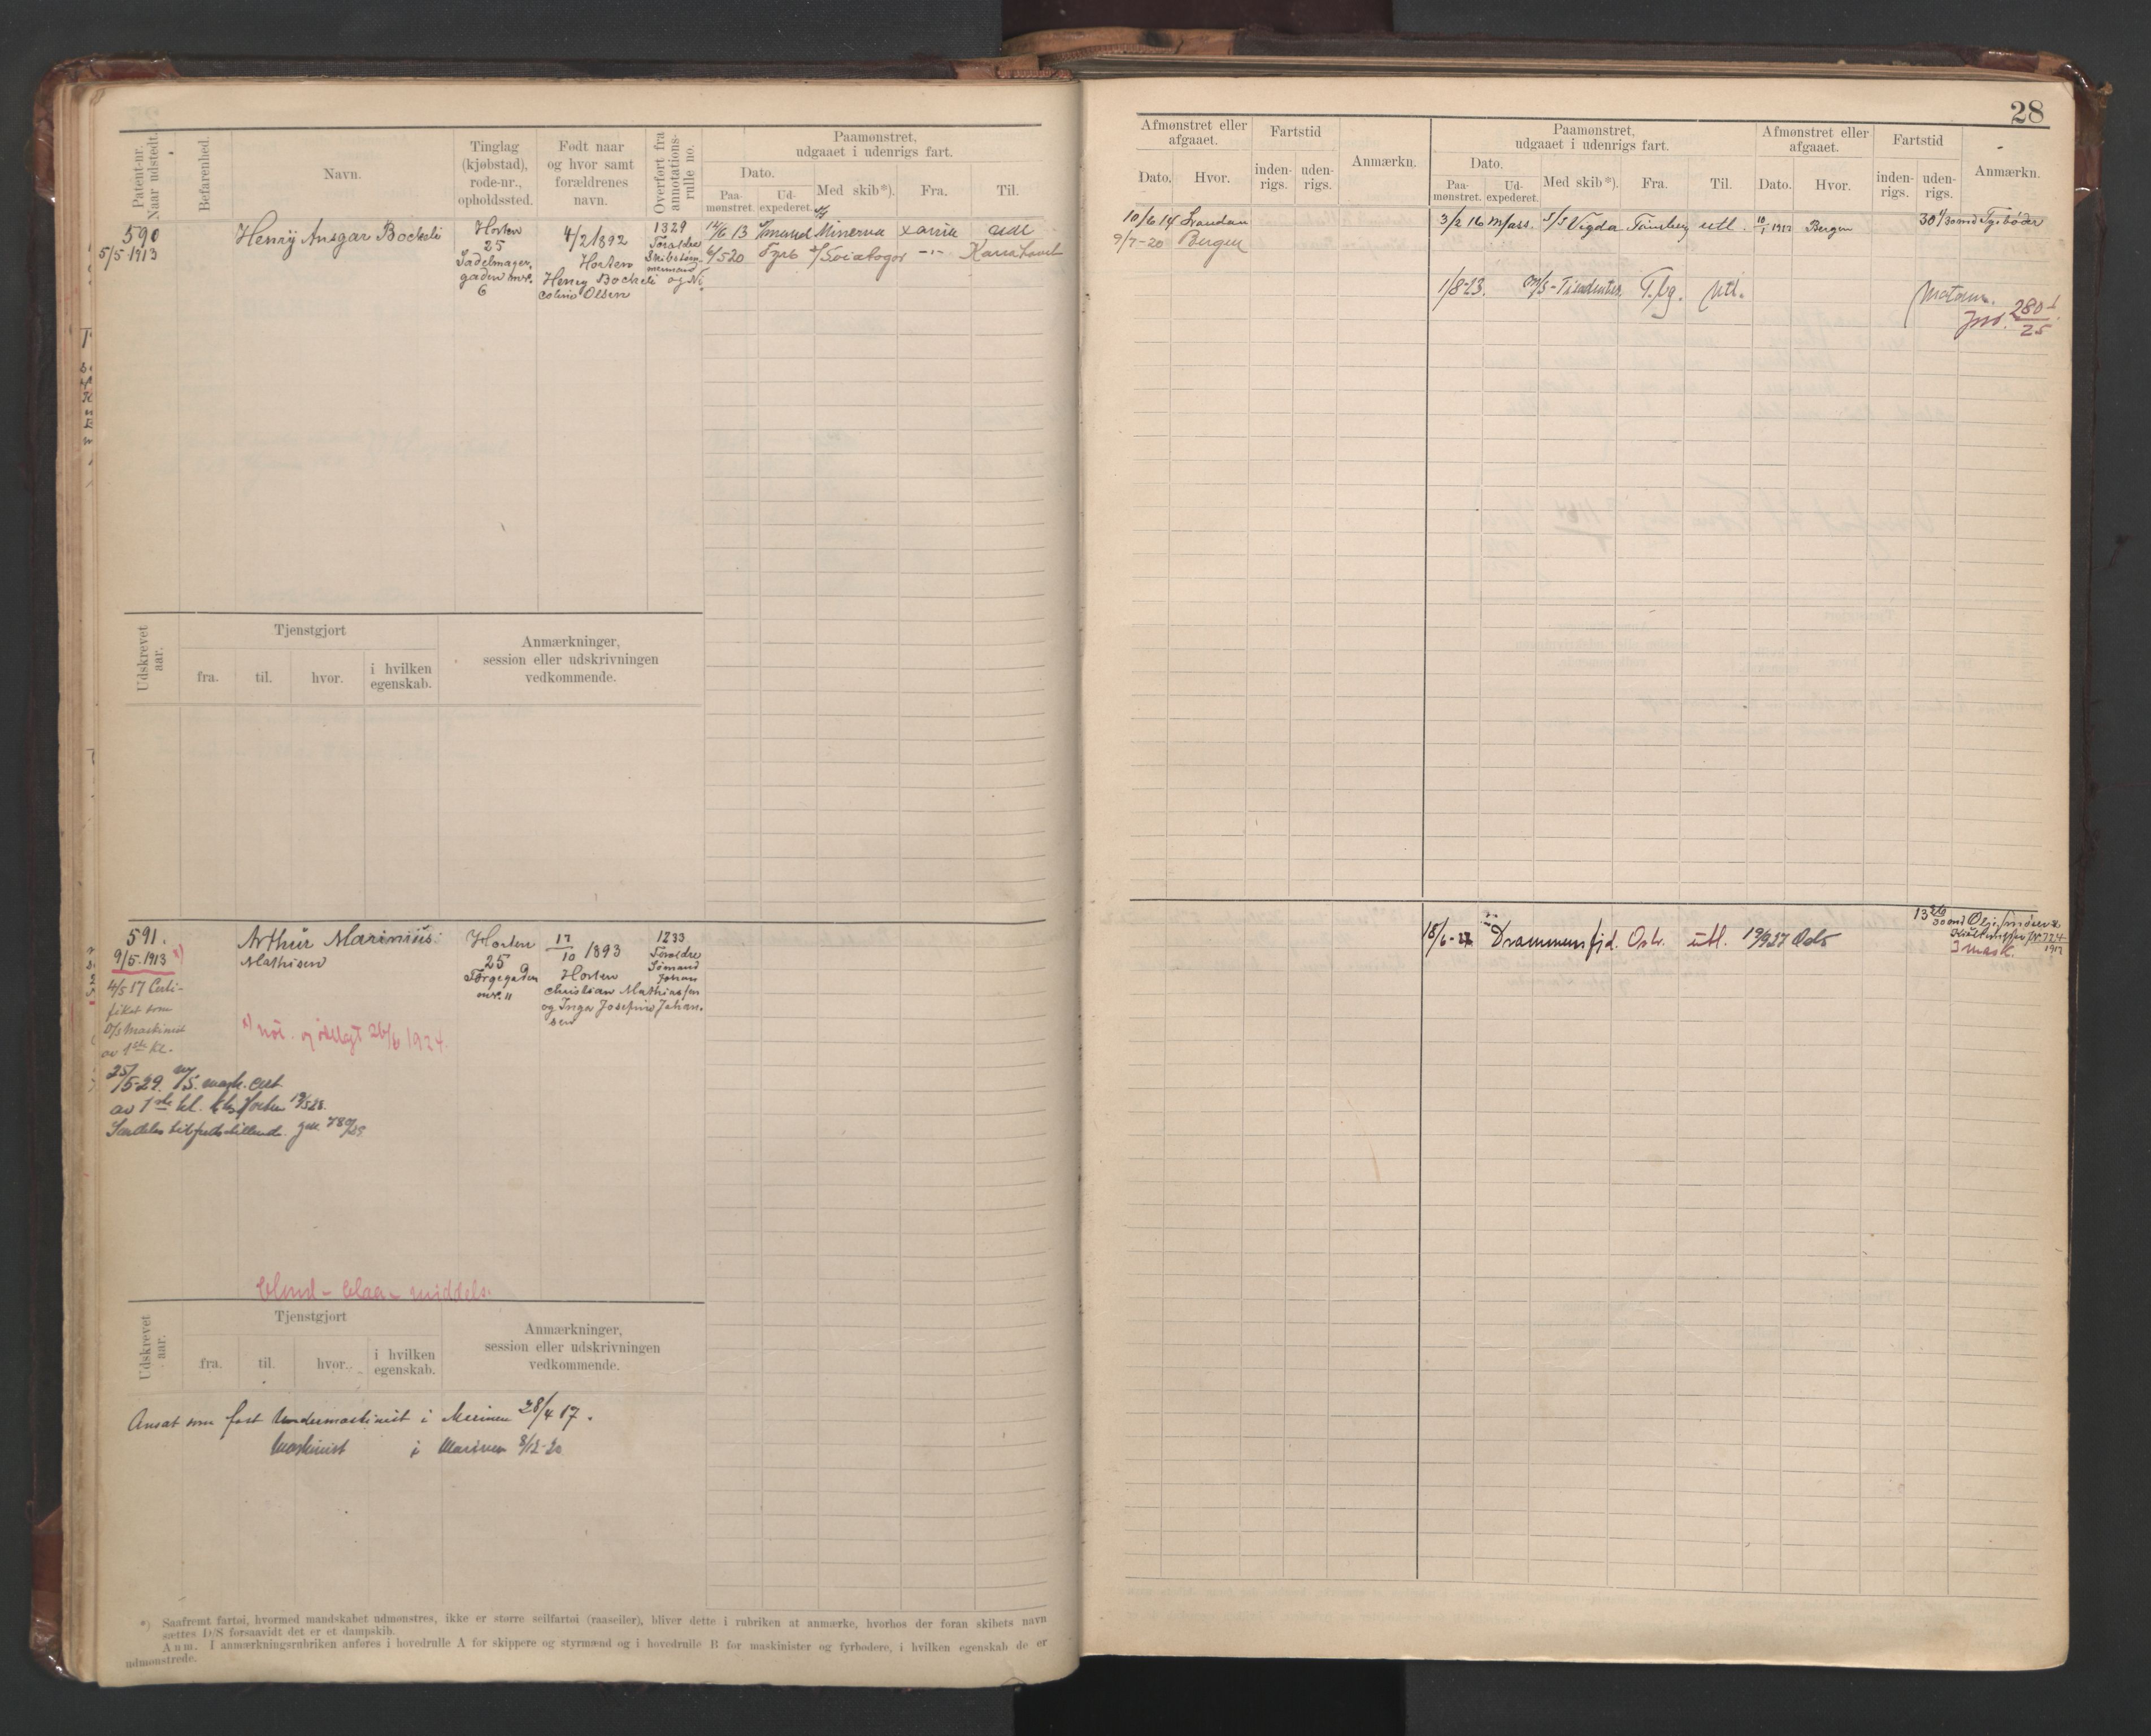 28
Patent-nr. Naar udstedt.
Befarenhed.
Navn.
Tinglag (kjøbstad), rode-nr., opholdssted.
Født naar og hvor samt forældrenes navn.
Overført fra annotations-rulle no.
Paamønstret, udgaaet i udenrigs fart.
Dato.
Paa-mønstret.
Ud-expederet.
Med skib*).
Fra.
Til.
590
5/5 1913
Henry Ansgar Bockeli
Horten
25
Sadelmager-
gaden
6
4/2 1892
Horten
Henry Bockeli og Ni-
coline Olsen
1329
Forældre
Skibstøm-
mermand
12/6 13
Minerva
6/5 20
Fyrb
Udskrevet aar.
Tjenstgjort
fra.
til.
hvor.
i hvilken egenskab.
Anmærkninger, session eller udskrivningen vedkommende.
591.
9/5.1913 x)
4/5 17 Certi-
fikat som
D/s Maskinist
av 1ste kl.
25/5-29. M/S. mask. cert.
av 1ste kl.
Arthur Marinius
Mathisen
x) og ødelagt 26/6 1924.
Horten
25
Torgegaden
11
17/10 1893
Horten
Christian Mathiassen
og Inga Josefine Johan-
sen
1233
Forældre
Sømand
Johan
blond - blaa - middels.
Udskrevet aar.
Tjenstgjort
fra.
til.
hvor.
i hvilken egenskab.
Anmærkninger, session eller udskrivningen vedkommende.
Ansat som fast Undermaskinist i Marinen 28/4 17.
Maskinist i Marinen 8/12-20
*) Saafremt fartøi, hvormed mandskabet udmønstres, ikke er større seilfartøi (raaseiler), bliver dette i rubriken at anmærke, hvorhos der foran skibets navn
sættes D/S forsaavidt det er et dampskib.
Anm. I anmærkningsrubriken anføres i hovedrulle A for skippere og styrmænd og i hovedrulle B for maskinister og fyrbødere, i hvilken egenskab de er
udmønstrede.
Afmønstret eller afgaaet.
Dato.
Hvor.
Fartstid
inden-rigs.
uden-rigs.
Anmærkn.
Paamønstret, udgaaet i udenrigs fart.
Dato.
Paa-mønstret.
Ud-expederet.
Med skib*).
Fra.
Til.
Afmønstret eller afgaaet.
Dato.
Hvor.
Fartstid
inden-rigs.
uden-rigs.
Anmærkn.
10/6 14
3/2 16 M/ass. S/S Vigda Tønsberg utl. 10/1 1917 Bergen
Fyrbøder
9/7-20 Bergen
1/8-23. T.bg. utl.
Motorm.
Jno. 280/25
18/6-27 Drammensfjd. Oslo. utl. 19/9 27 Oslo
3 mask.